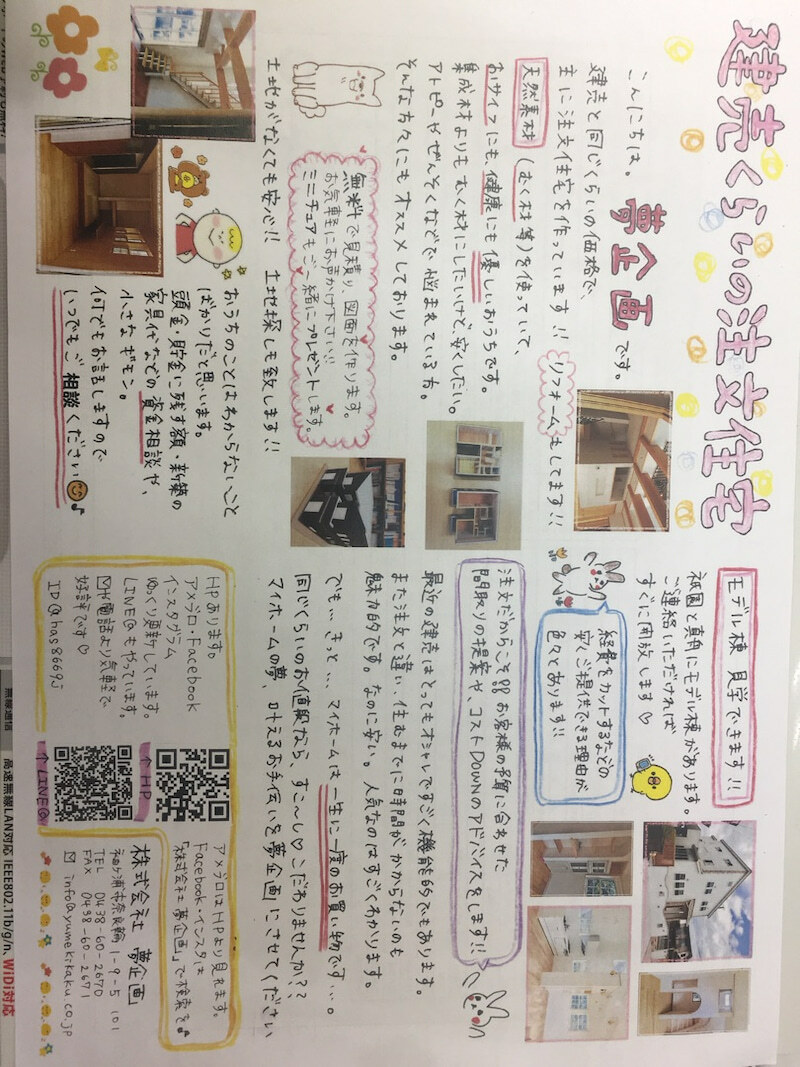 建売くらいの注文住宅
こんにちは。
夢企画です。
建売と同じくらいの価格で、
主に注文住宅を作っています!!
リフォームもしてます!!
天然素材(むく材等)を使っていて、
おサイフにも、健康にも優しいおうちです。
集成材よりもむく材にしたいけど、安くしたい。
アトピーやぜんそくなどで悩まれている方。
そんな方々にもオススメしております。
無料で見積り、図面を作ります。
お気軽にお声かけ下さい!!
ミニチュアもご一緒にプレゼントします。
土地がなくても安心!! 土地探しも致します!!
おうちのことはわからないこと
ばかりだと思います。
頭金・貯金に残す額・新築の
家具代などの資金相談や、
小さなギモン。
何でもお話しますので
いつでもご相談ください♪
モデル棟見学できます!!
祇園と真舟にモデル棟があります。
ご連絡いただければ
すぐに開放します♡
経費をカットするなどの
安くご提供できる理由が
色々とあります!!
注文だからこそ!!お客様の予算に合わせた
間取りの提案や、コストDOWNのアドバイスをします!!
最近の建売はとってもオシャレですごく機能的でもあります。
また注文と違い、住むまでに日時間がかからないのも
魅力的です。なのに安い。人気なのはすごくわかります。
でも…きっと…マイホームは一生に一度のお買い物です…。
同じくらいのお値段なら、すこ～し♡こだわりませんか??
マイホームの夢、叶えるお手伝いを夢企画にさせてください
HPあります。
アメブロ・Facebook
インスタグラム
ゆっくり更新しています。
LINE@もやっています。
✉や電話より気軽で
好評です♡
ID@has8669j
↑HP
↑LINE@
アメブロはHPより見れます。
Facebook・インスタは
「株式会社 夢企画」で検索を♪
株式会社 夢企画
袖ヶ浦市奈良輪1-9-5 101
TEL 0438-60-2670
FAX 0438-60-2671
✉ info@yumekikaku.co.jp
無線通信
高速無線LAN対応 IEEE802.11b/g/n、WiDi対応